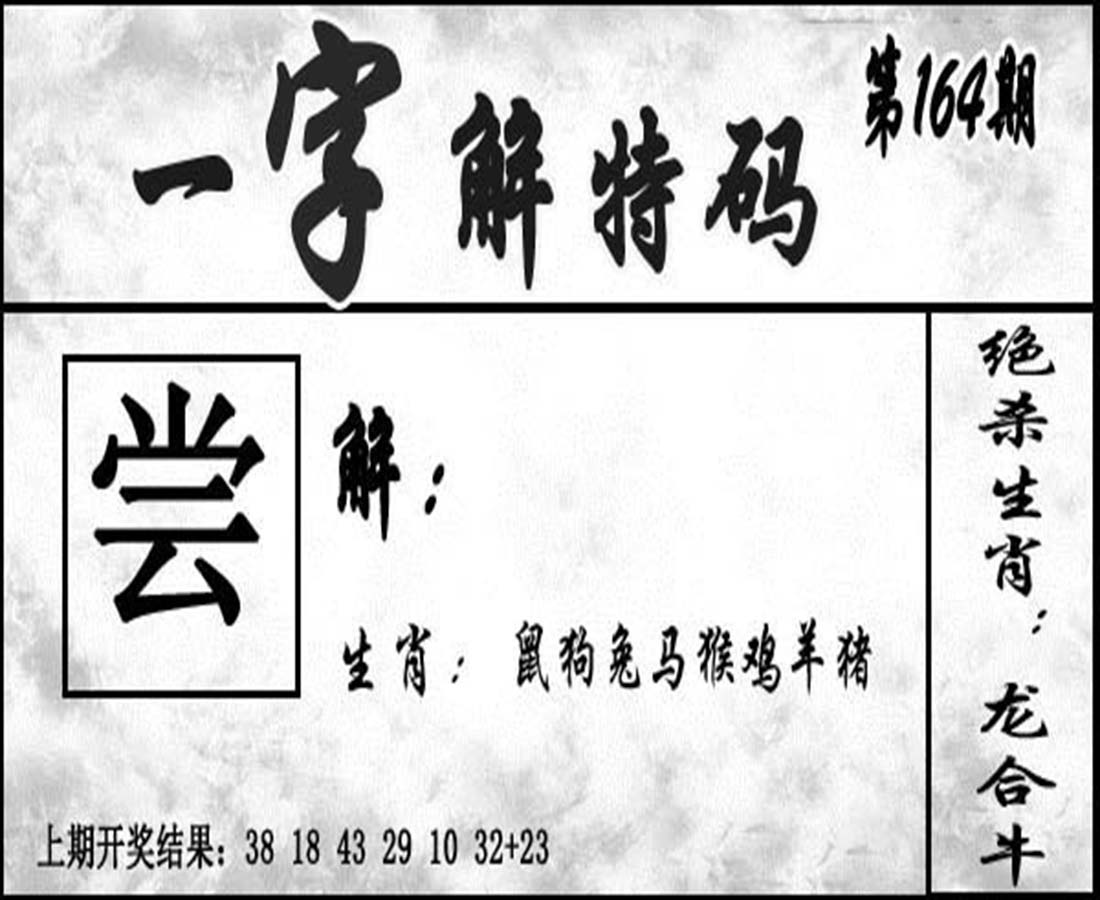 一字解特码
第164期
尝
解：
生肖：鼠狗兔马猴鸡羊猪
上期开奖结果：38 18 43 29 10 32+23
绝杀生肖：龙合牛